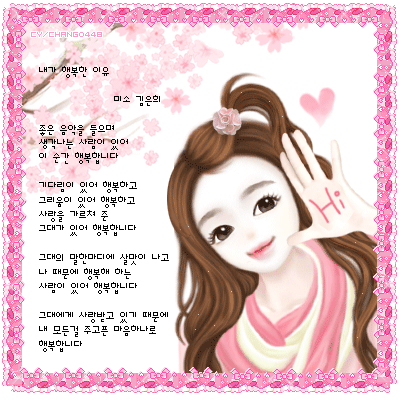 CY/CHANG0448
내가 행복한 이유
미소 김은희
좋은 음악을 들으며
생각나는 사람이 있어
이 순간 행복합니다
기다림이 있어 행복하고
그리움이 있어 행복하고
사랑을 가르쳐 준
그대가 있어 행복합니다
그대의 말한마디에 살맛이 나고
나 때문에 행복해 하는
사람이 있어 행복합니다
그대에게 사랑받고 있기 때문에
내 모든걸 주고픈 마음하나로
행복합니다
Hi